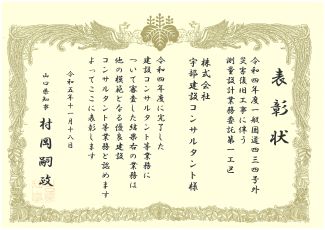 表彰状
令和四年度一般国道四三四号外
災害復旧工事に伴う
測量設計業務委託第一工区
株式会社
宇部建設コンサルタント様
令和四年度に完了した
建設コンサルタント等業務に
ついて審査した結果右の業務は
他の模範となる優良建設
コンサルタント等業務と認めます
よってここに表彰します
令和五年十一月十八日
山口県知事 村岡嗣政